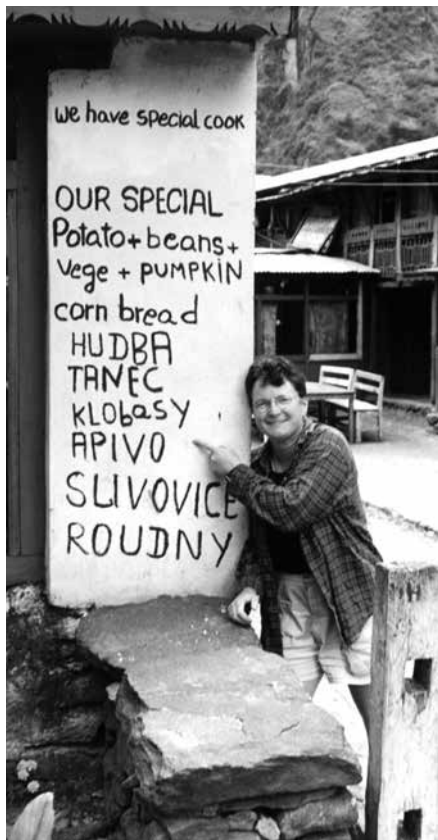 we have special cook
OUR SPECIAL
Potato + beans +
Vege + PUMPKIN
corn bread
HUDBA
TANEC
KLObaSY
APIVO
SLIVOVICE
ROUDNY